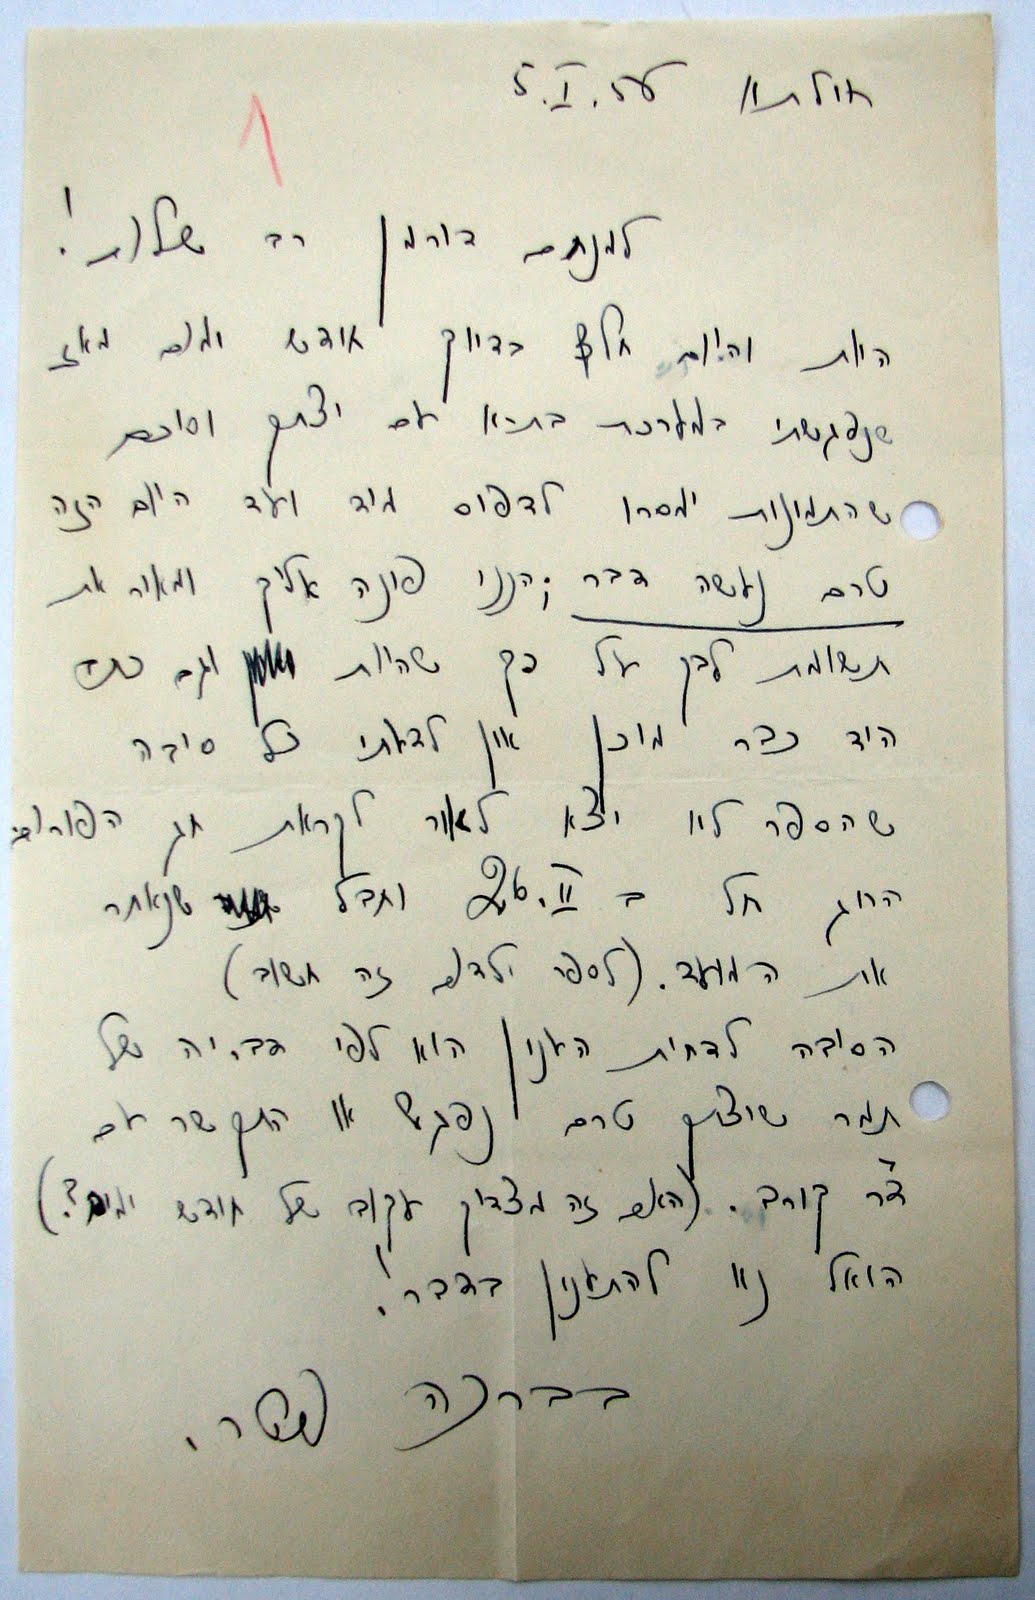 חולתא 5.I.56
למנחם דורמן רב שלות!
היות והיום חלף בדיוק חודש ימים מאז
שנפגשתי במערכת בת-א עם יצחק וסוכם
שהתמונות ימסרו לדפוס מיד ועד היום הזה
טרם נעשה דבר; הנני פונה אליך ומאיר את
תשומת לבך על כך שהיות וגם כתב
היד כבר מוכן אין לדעתי כל סיבה
שהספר לא יצא לאור לקראת חג הפורים
החג חל ב 26.II וחבל שנאחר
את המועד. (לספר ילדים זה חשוב)
הסיבה לדחית הענין הוא לפי דבריה של
תמר שיצחק טרם נפגש או התקשר עם
ד״ר קורב. (האם זה מצדיק עקוב של חודש ימים?)
הואל נא להתענין בדבר!
בברכה